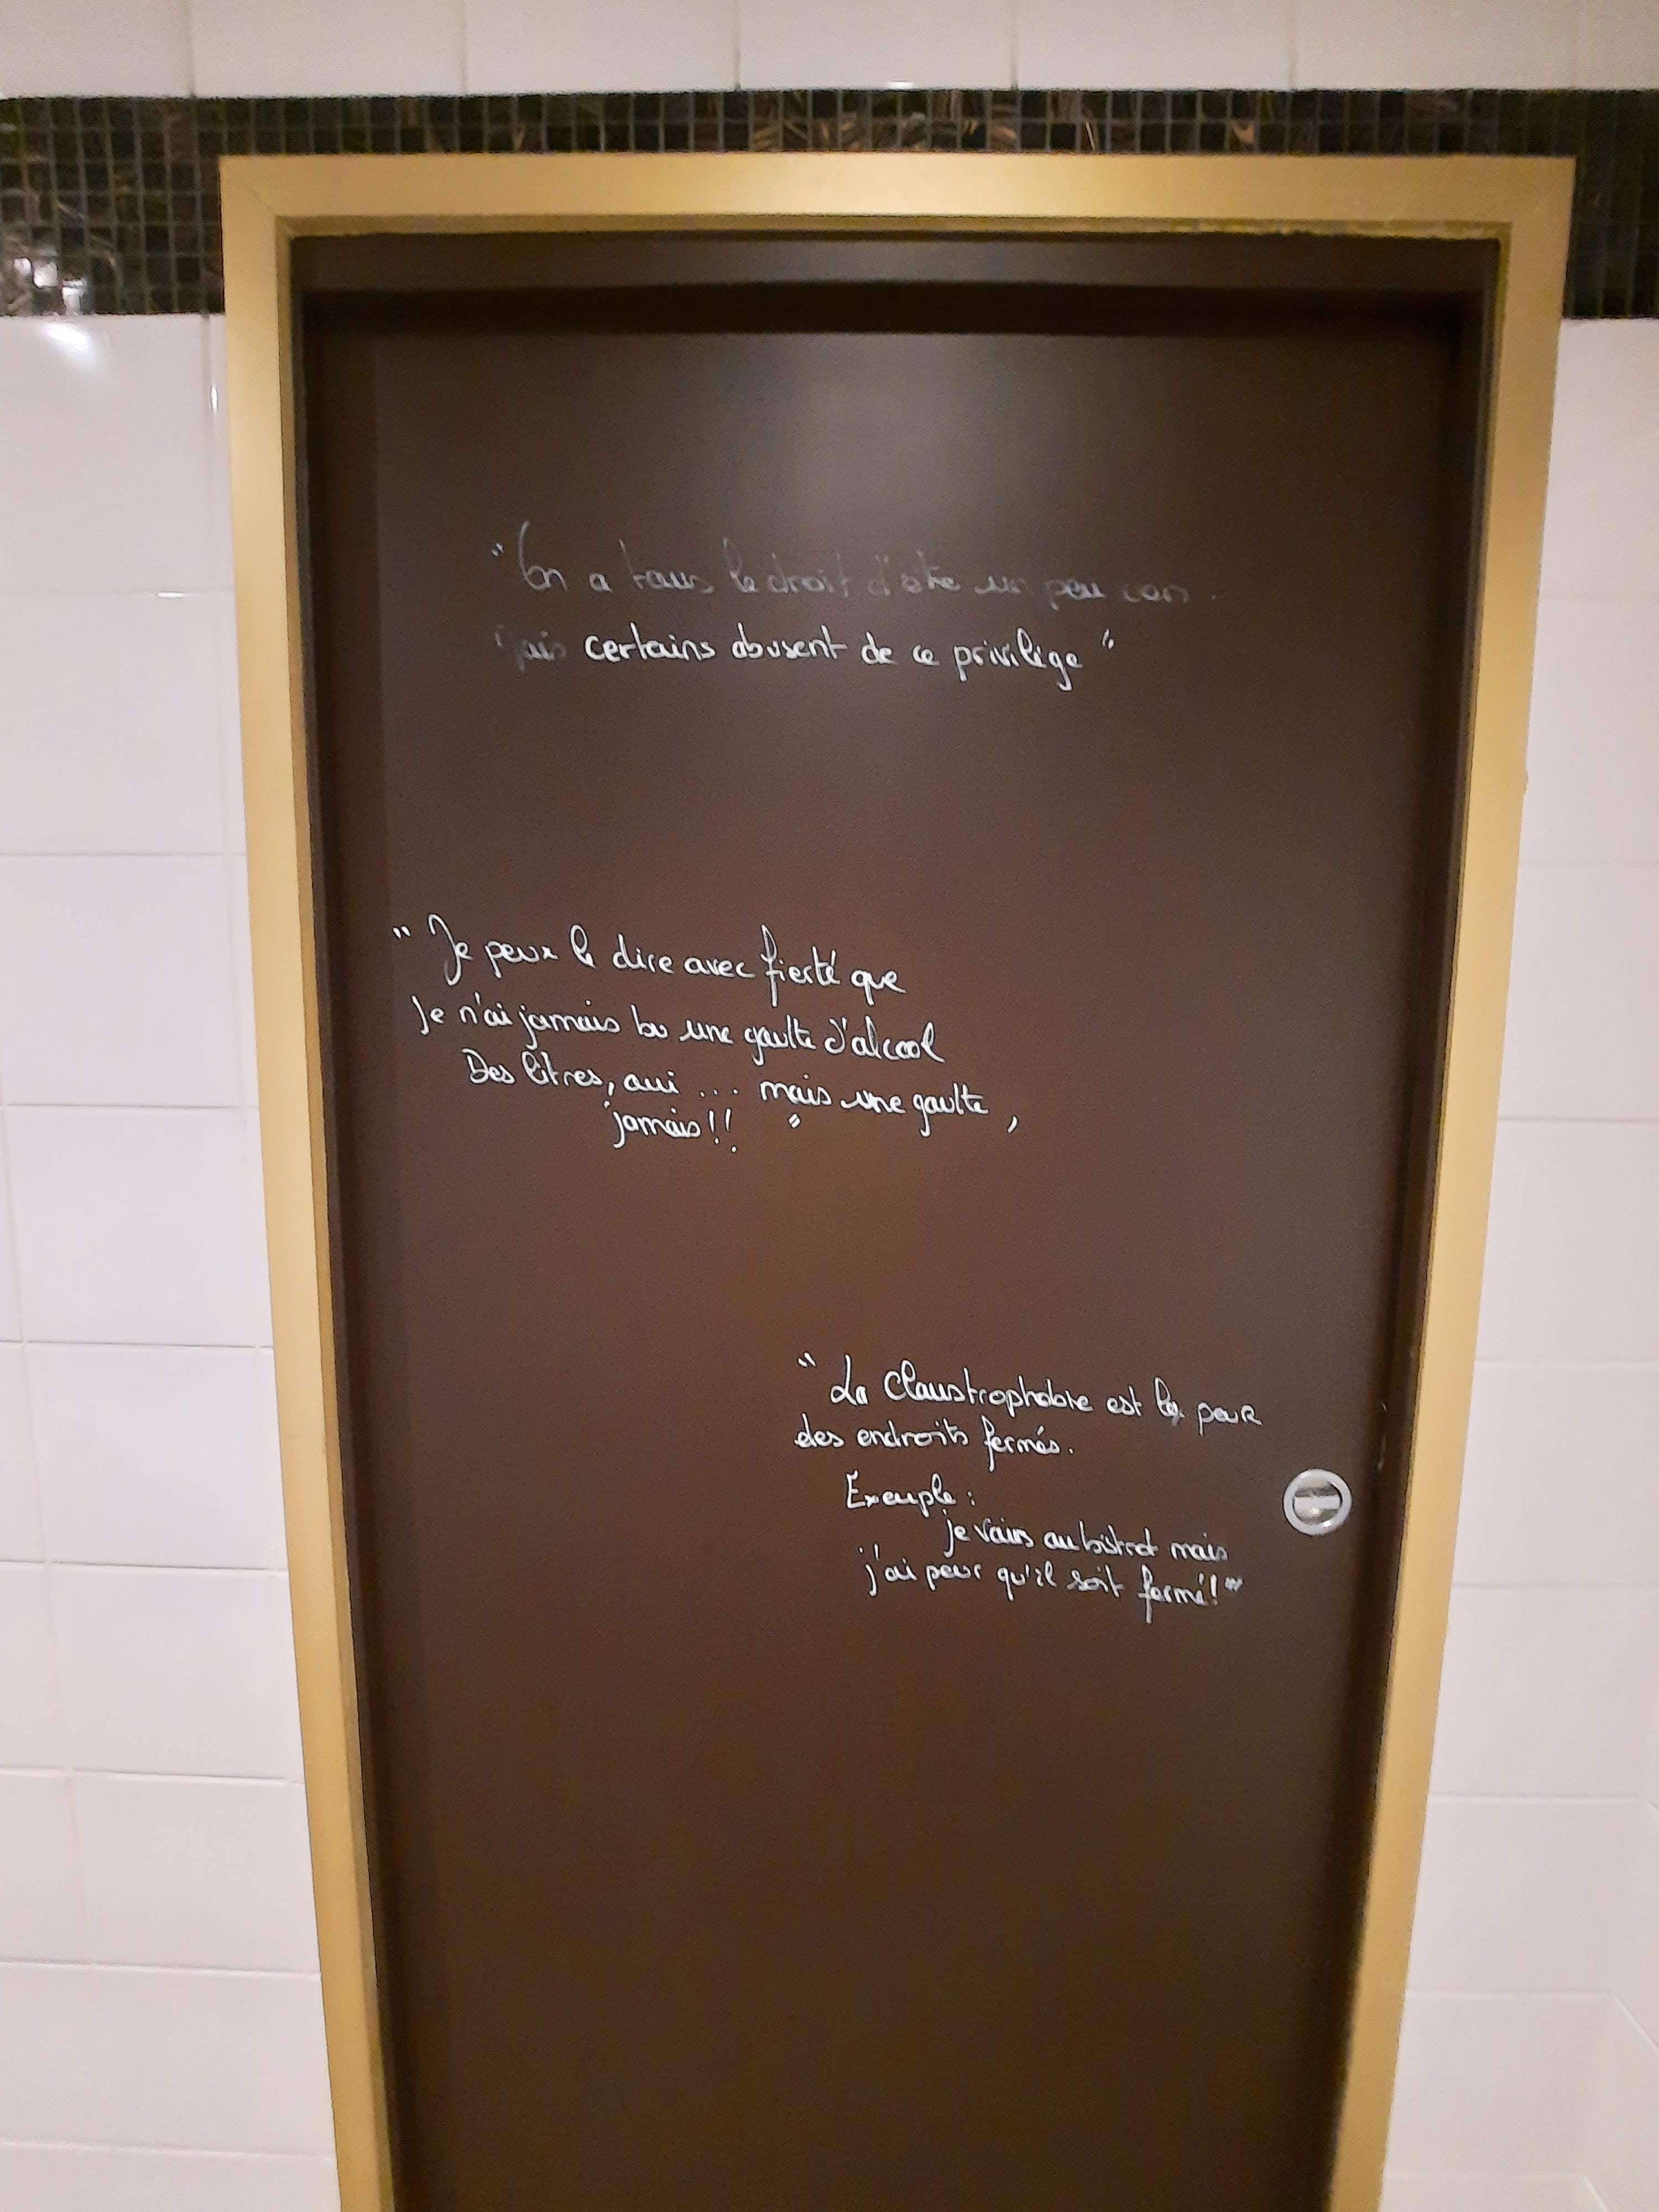 "On a tous le droit d'être un peu con.
Mais certains abusent de ce privilège"
"Je peux le dire avec fierté que
je n'ai jamais bu une goutte d'alcool
Des litres, oui ... mais une goutte,
jamais!!"
"La Claustrophobie est la peur
des endroits fermés.
Exemple :
je vais au bistrot mais
j'ai peur qu'il soit fermé!"